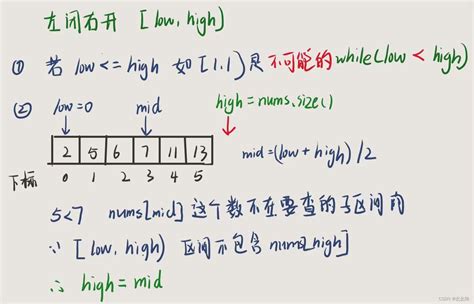 左闭右开 [low, high)
① 若 low<=high 如[1,1)是不可能的 while(low < high)
② low=0 mid high=nums.size()
2 5 6 7 11 13 mid=(low+high)/2
下标 0 1 2 3 4 5
5<7 nums[mid] 这个数不在要查的子区间内
∵ [low, high) 区间不包含nums[high]
∴ high=mid